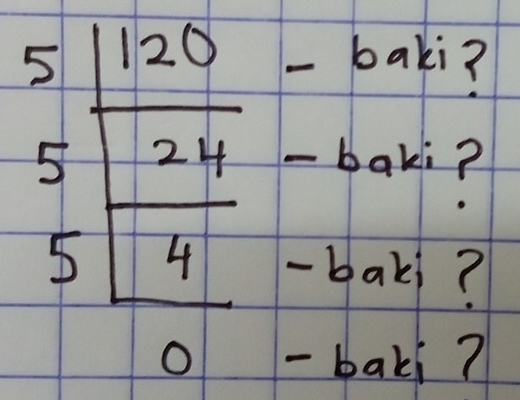 5 120 - baki?
5 24 - baki?
5 4 - baki?
0 - baki?